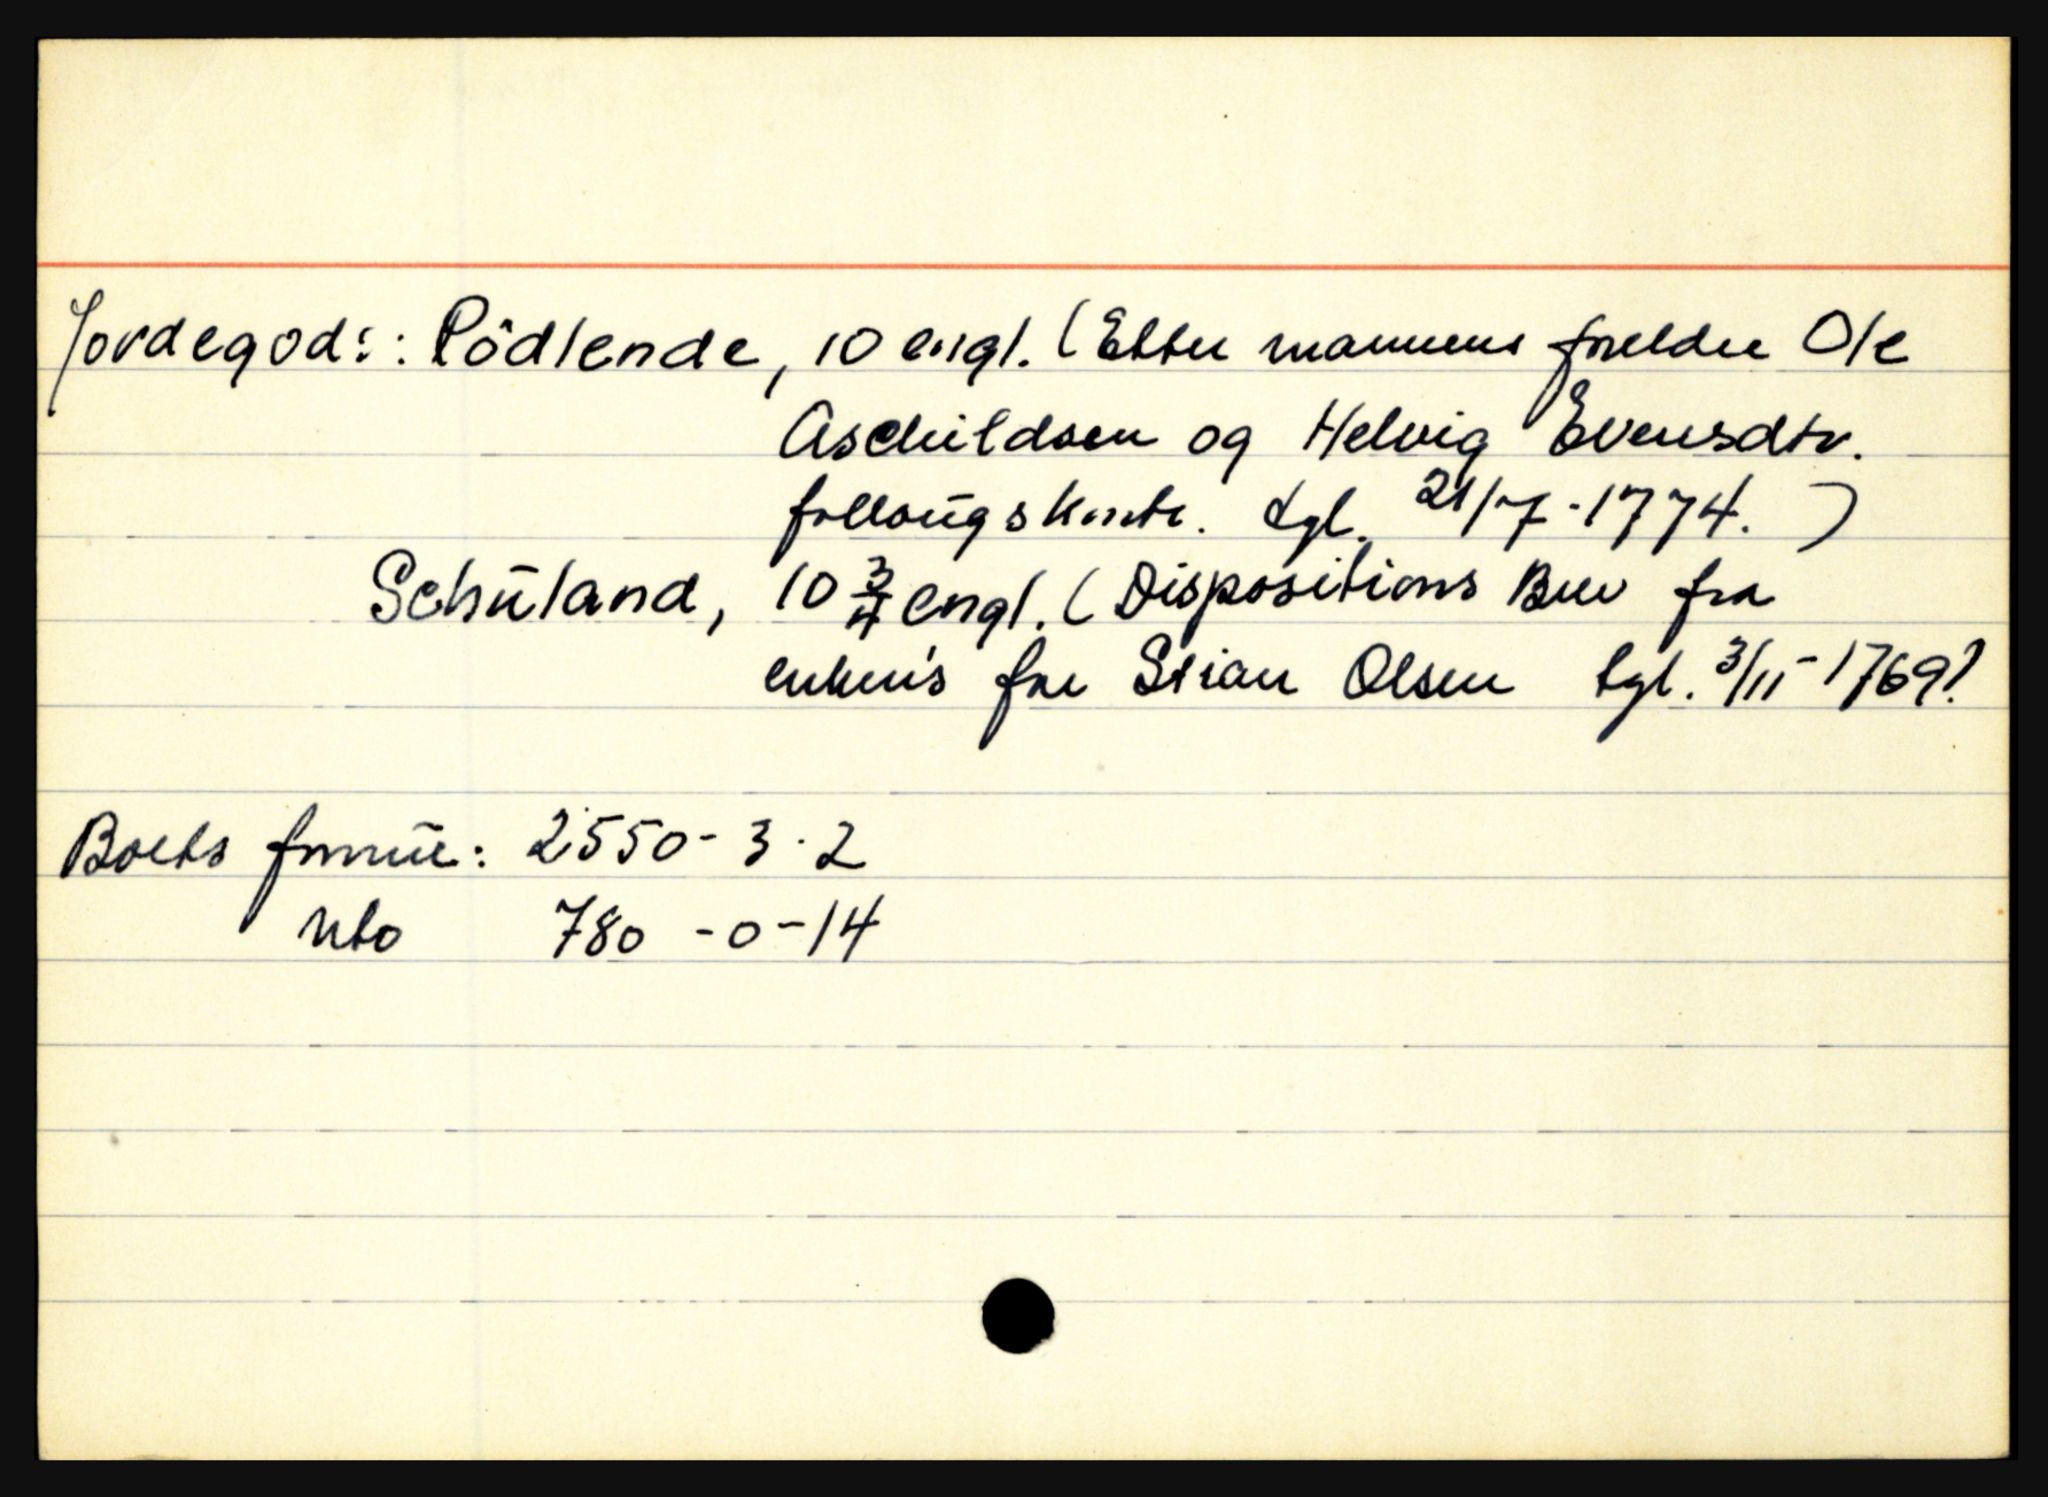 Jordegods: Rödlende, 10 engl. (Etter mannens foreldre Ole
Aschildsen og Helvig Evensdtr.
follougskontr. tgl. 21/7-1774.)
Schuland, 10 3/4 engl. (Dispositions Brev fra
enken's far Stian Olsen tgl. 3/11-1769)
Boets formue: 2550-3-2
nto 780-0-14